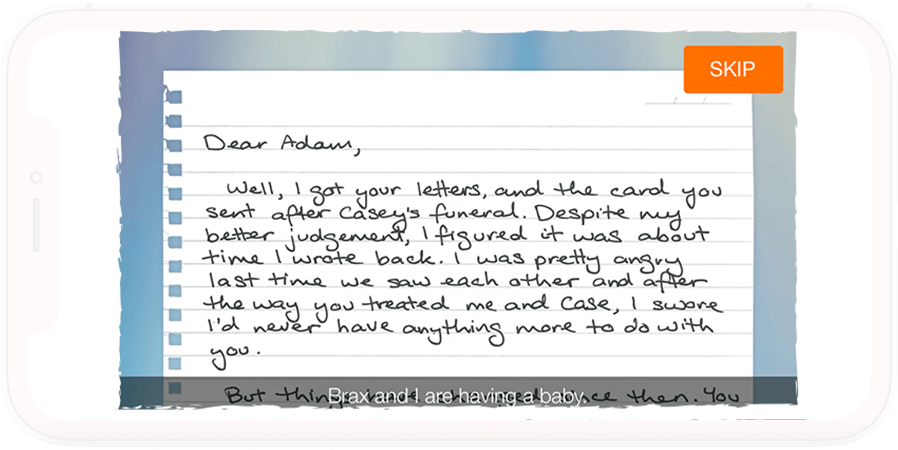 SKIP
Dear Adam,
Well, I got your letters, and the card you
sent after Casey's funeral. Despite my
better judgement, I figured it was about
time I wrote back. I was pretty angry
last time we saw each other and after
the way you treated me and Case, I swore
I'd never have anything more to do with
you.
But then. You
Brax and I are having a baby.